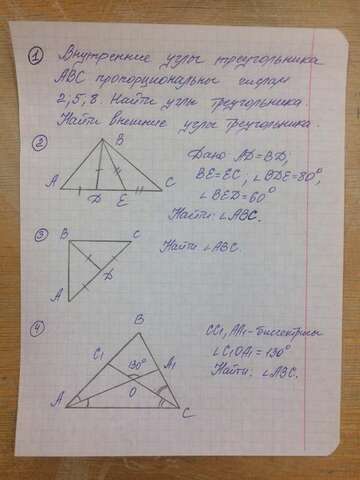 1 Внутренние углы треугольника
ABC пропорциональны числам
2, 5, 8. Найти углы треугольника.
Найти внешние углы треугольника.
2
B
A
D
E
C
Дано AD=BD;
BE=EC; ∠BDE=80°,
∠BED=60°
Найти: ∠ABC.
3
B
C
D
A
Найти ∠ABC.
4
B
C1
130°
A1
O
A
C
CC1, AA1-биссектрисы
∠C1OA1=130°
Найти: ∠ABC.